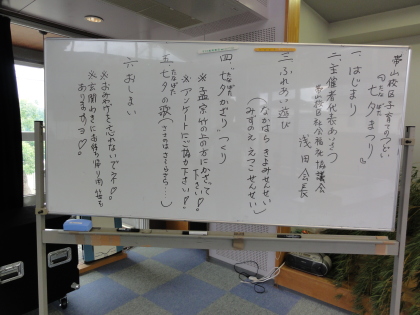 帯山校区子育てのつどい
『七夕まつり』
たなばた
一、はじまり
二、主催者代表あいさつ
帯山校区社会福祉協議会
浅田会長
三、ふれあい遊び
なかはら きよみせんせい
みずのえ えつこせんせい
四、七夕かざりつくり
たなばた
※孟宗竹の上の方にかざって下さい♡!
※アンケートにご協力下さい♡!
五、七夕の歌(ささのはさらさら…)
たなばた
六、おしまい
※おみやげを忘れないでネ♡!
※玄関わきにお持ち帰り用笹もありますョ♡!